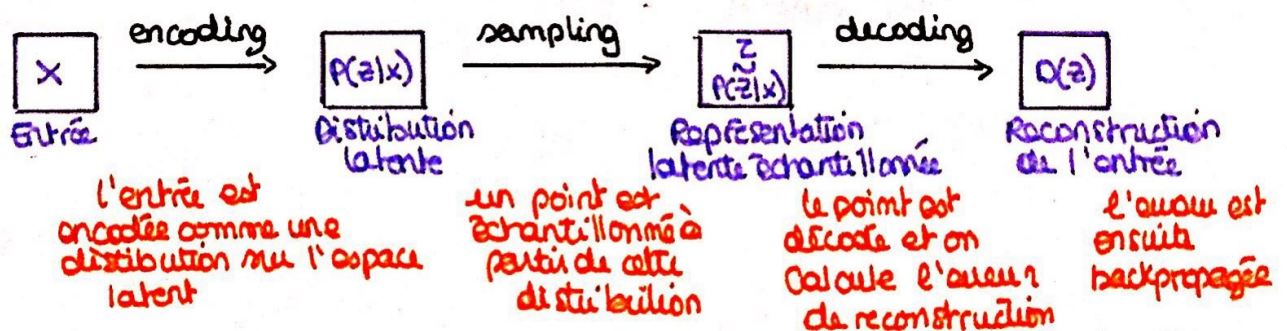 encoding
sampling
decoding
X
P(z|x)
z
~
P(z|x)
D(z)
Entrée
Distribution
latente
Représentation
latente échantillonnée
Reconstruction
de l'entrée
l'entrée est
encodée comme une
distibution sur l'espace
latent
un point est
échantillonné à
partir de cette
distribution
le point est
décodé et on
calcule l'erreur
de reconstruction
l'erreur est
ensuite
backpropagée